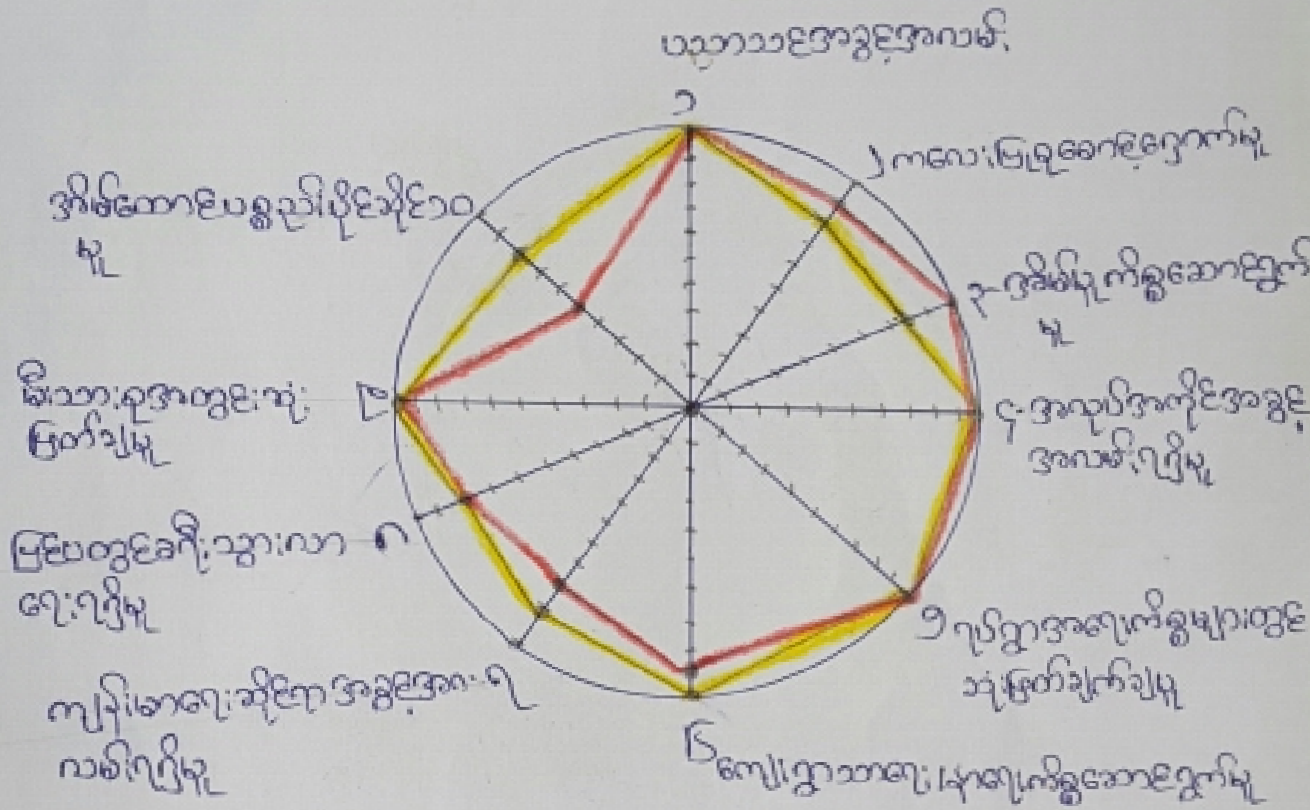 ပညာသင်အခွင့်အလမ်း
၁
၂ ကလေးပြုစုစောင့်ရှောက်မှု
၃-အိမ်မှုကိစ္စဆောင်ရွက်
မှု
၄-အလုပ်အကိုင်အခွင့်
အလမ်းရရှိမှု
၅ ရပ်ရွာအရေးကိစ္စများတွင်
ဆုံးဖြတ်ချက်ချမှု
၆ ကျေးရွာသာရေး၊နာရေးကိစ္စဆောင်ရွက်မှု
ကျန်းမာရေးဆိုင်ရာအခွင့်အ ၇
လမ်းရရှိမှု
ပြင်ပတွင်ခရီးသွားလာ ၈
ရေးရရှိမှု
မိသားစုအတွင်းဆုံး ၉
ဖြတ်ချမှု
အိမ်ထောင်ပစ္စည်းပိုင်ဆိုင် ၁၀
မှု